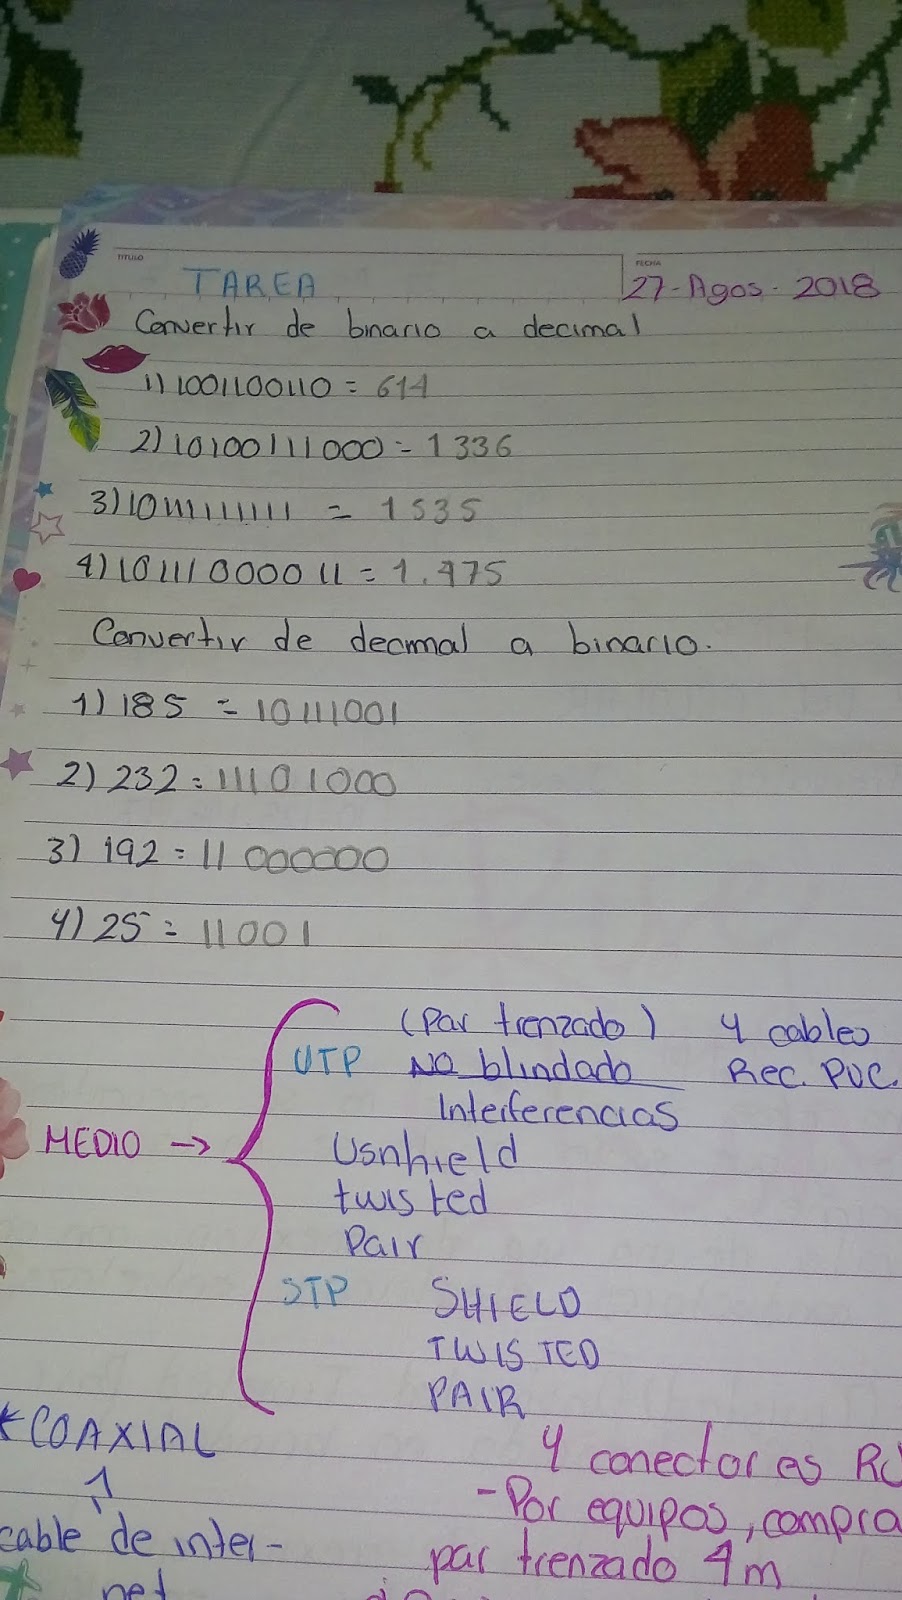 TITULO
TAREA
FECHA
27-Agos-2018
Convertir de binario a decimal
1) 1001100110 = 614
2) 10100111000 = 1336
3) 10111111111 = 1535
4) 10111000011 = 1.475
Convertir de decimal a binario.
1) 185 = 10111001
2) 232 = 11101000
3) 192 = 11000000
4) 25 = 11001
MEDIO →
UTP (Par trenzado) 4 cables
No blindado Rec. PVC.
Interferencias
Usnhield
twisted
Pair
STP SHIELD
TWISTED
PAIR
*COAXIAL
cable de inter-
net
4 conector es
- Por equipos, compra
par trenzado 4m